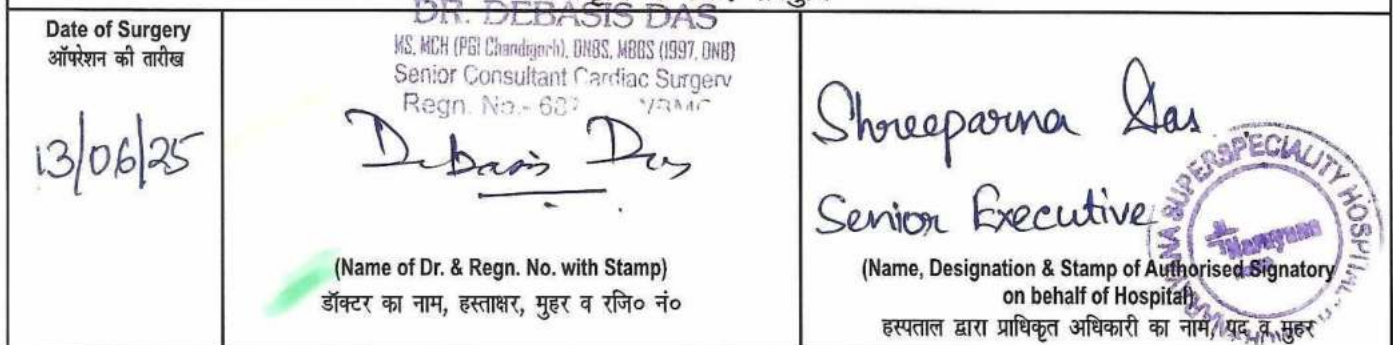 DR. DEBASIS DAS
MS, MCH (PGI Chandigarh), DNBS, MBBS (1997, DNB)
Senior Consultant Cardiac Surgery
Regn. No.- WBMC
Date of Surgery
ऑपरेशन की तारीख
13/06/25
Debasis Das
(Name of Dr. & Regn. No. with Stamp)
डॉक्टर का नाम, हस्ताक्षर, मुहर व रजि० नं०
Shreeparna Das
Senior Executive
NARAYANA SUPERSPECIALITY HOSPITAL
Narayana
(Name, Designation & Stamp of Authorised Signatory
on behalf of Hospital)
हस्पताल द्वारा प्राधिकृत अधिकारी का नाम, पद व मुहर